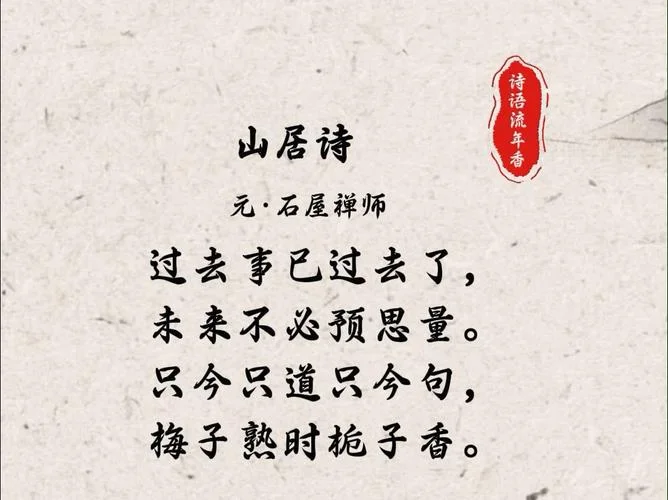 诗语流年香
山居诗
元·石屋禅师
过去事已过去了，
未来不必预思量。
只今只道只今句，
梅子熟时栀子香。